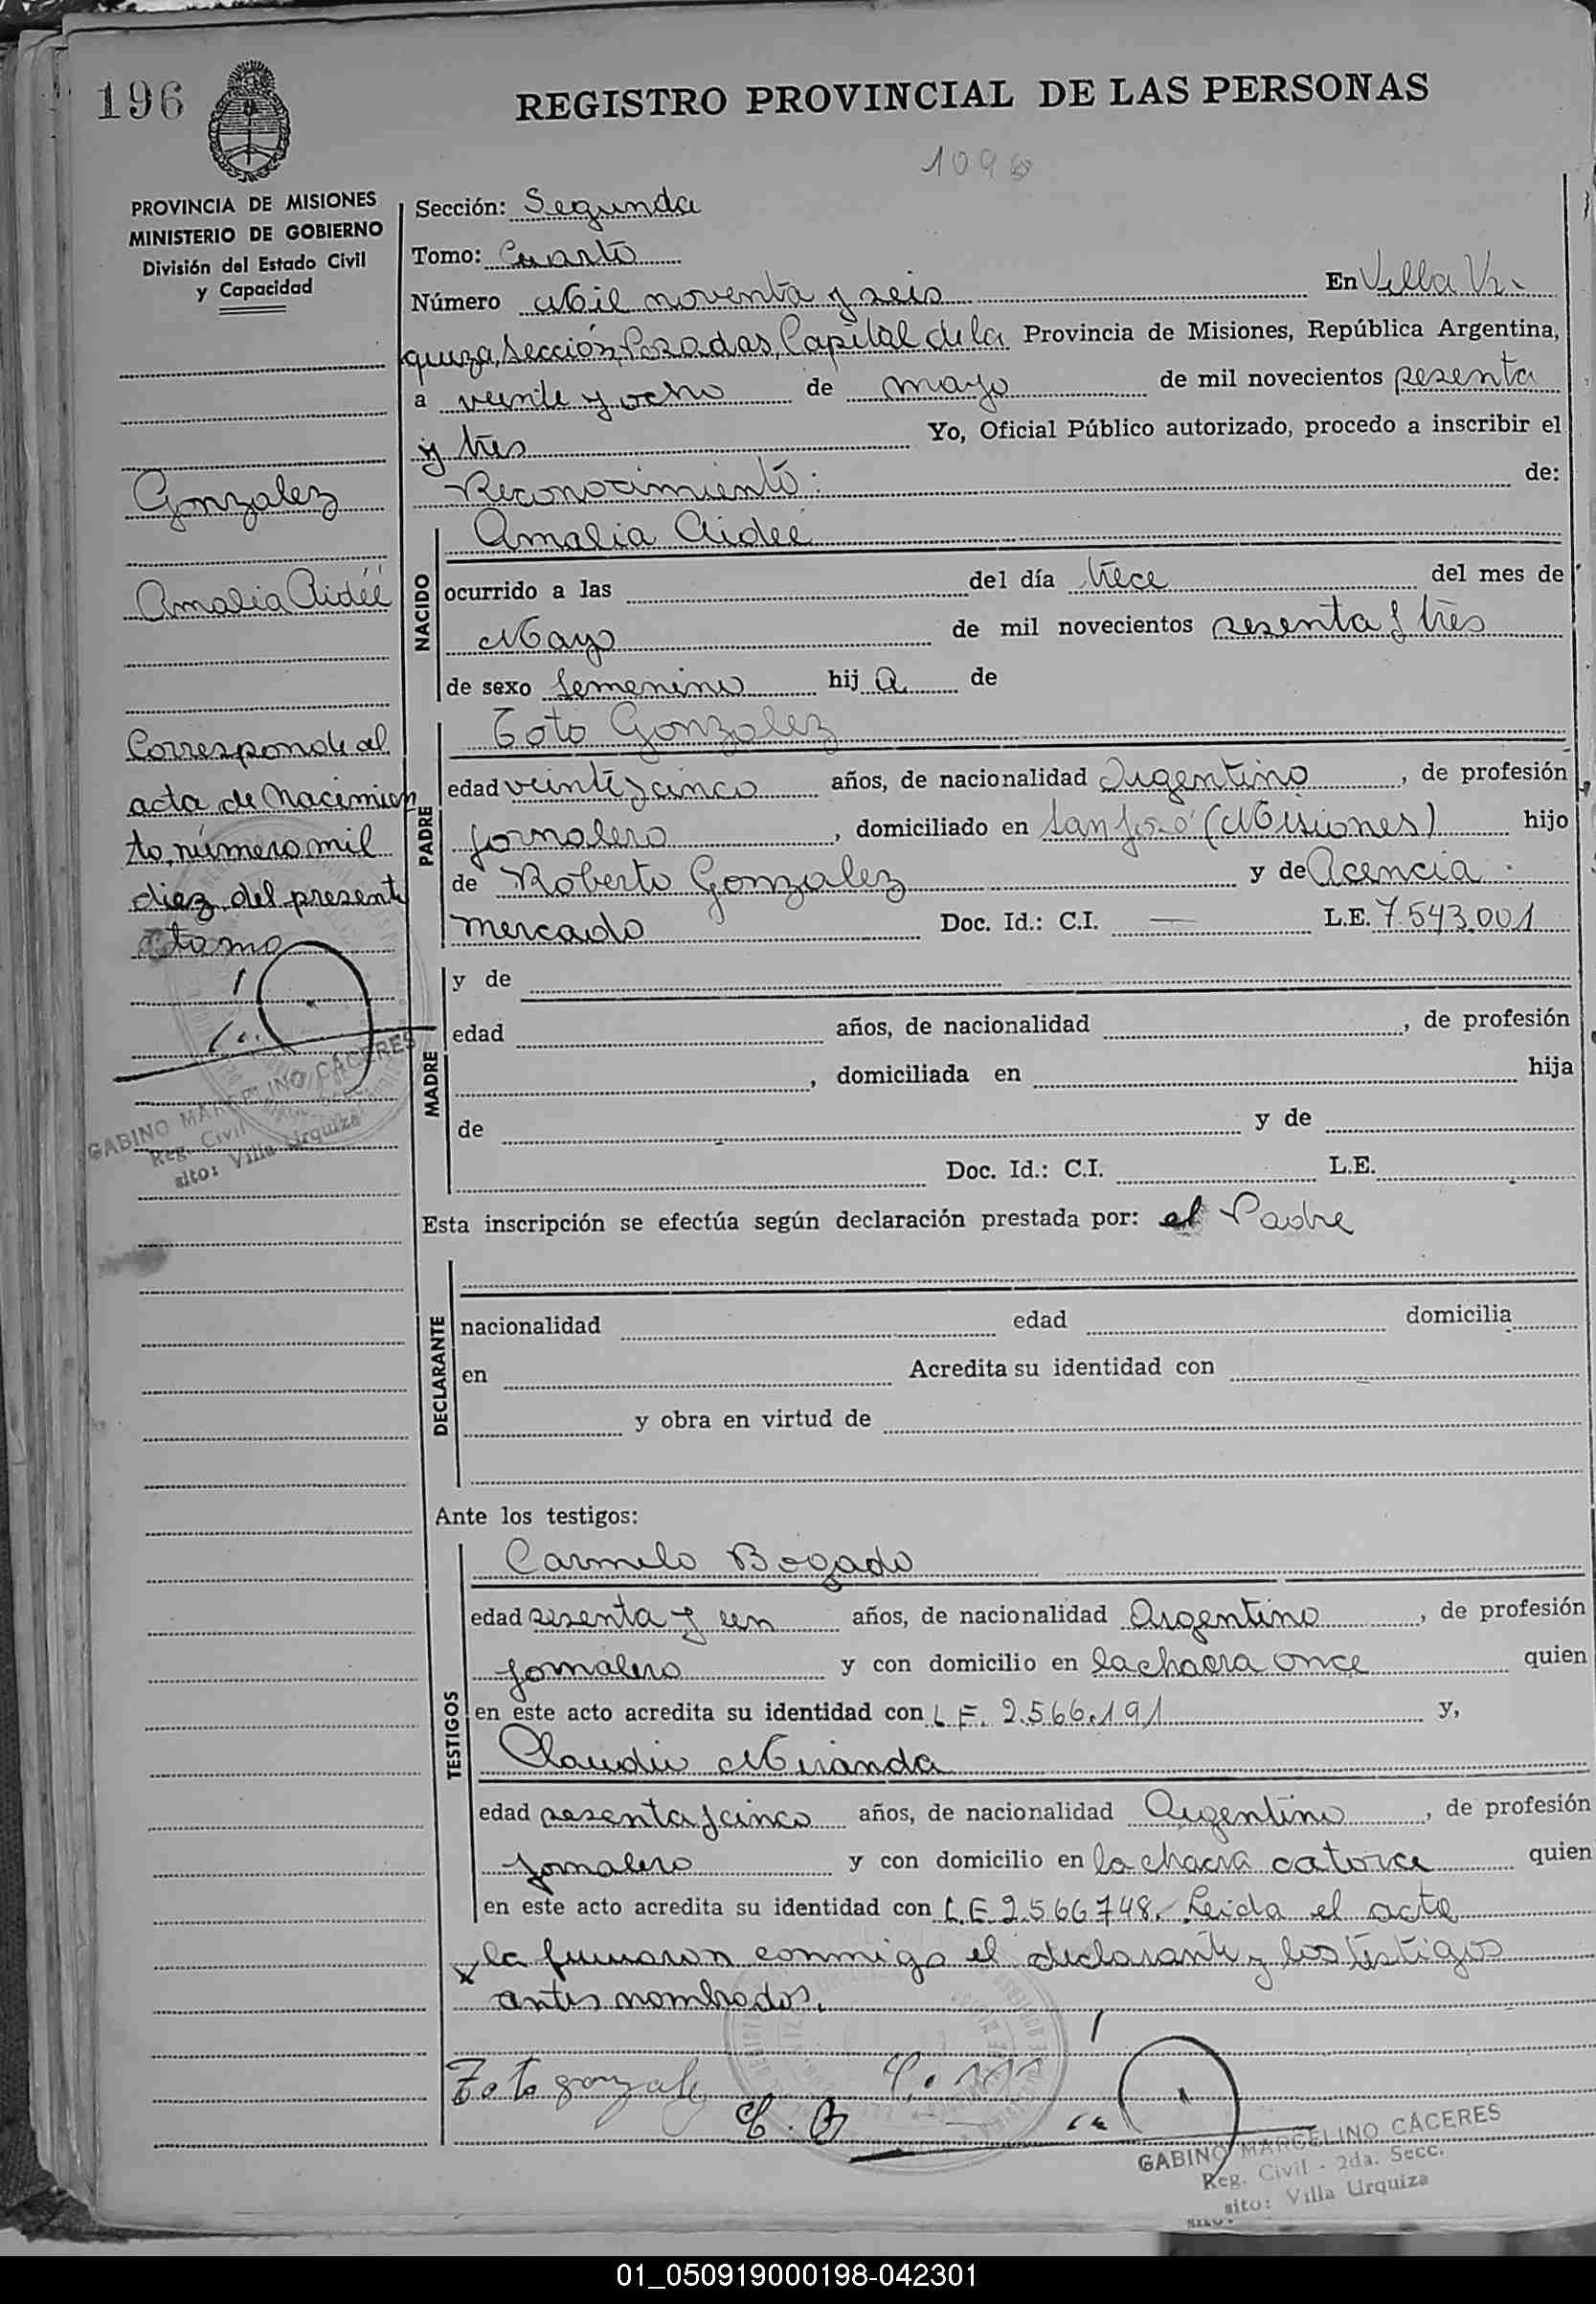 196
REGISTRO PROVINCIAL DE LAS PERSONAS
1096
PROVINCIA DE MISIONES
MINISTERIO DE GOBIERNO
División del Estado Civil
y Capacidad
Gonzalez
Amalia Aidéé
Corresponde al
acta de Nacimien
to, número mil
diez del present
tomo
GABINO MARCELINO CÁCERES
Reg. Civil
sito: Villa Urquiza
Sección: Segunda
Tomo: Cuarto
Número Mil noventa y seis En Villa Ur
quiza, Sección, Posadas, Capital de la Provincia de Misiones, República Argentina,
a veinte y ocho de mayo de mil novecientos sesenta
y tres Yo, Oficial Público autorizado, procedo a inscribir el
Reconocimiento: de:
NACIDO
Amalia Aidee
ocurrido a las del día trece del mes de
Mayo de mil novecientos sesenta y tres
de sexo femenino hij a de
PADRE
Toto Gonzalez
edad veinte y cinco años, de nacionalidad Argentino, de profesión
jornalero, domiciliado en San José (Misiones) hijo
de Roberto Gonzalez y de Acencia
Mercado Doc. Id.: C.I. — L.E. 7.543.001
MADRE
y de
edad años, de nacionalidad , de profesión
, domiciliada en hija
de y de
Doc. Id.: C.I. L.E.
Esta inscripción se efectúa según declaración prestada por: el Padre
DECLARANTE
nacionalidad edad domicilia
en Acredita su identidad con
y obra en virtud de
Ante los testigos:
TESTIGOS
Carmelo Bogado
edad sesenta y un años, de nacionalidad Argentino, de profesión
jornalero y con domicilio en la chacra once quien
en este acto acredita su identidad con L.E. 2.566.191 y,
Claudio Miranda
edad sesenta y cinco años, de nacionalidad Argentino, de profesión
jornalero y con domicilio en la chacra catorce quien
en este acto acredita su identidad con L.E. 2.566748.- Leida el acta
x la firmaron conmigo el declarante y los testigos
antes nombrados.
Toto gonzalez
C. B
GABINO MARCELINO CÁCERES
Reg. Civil - 2da. Secc.
sito: Villa Urquiza
01_050919000198-042301